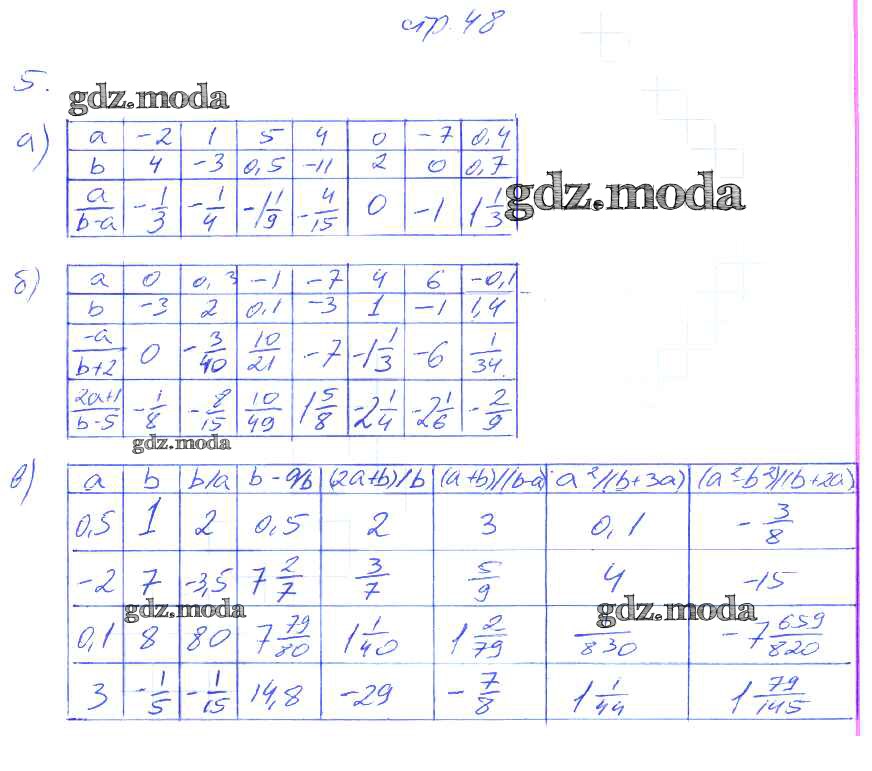 стр. 48
5.
gdz.moda
а)
a -2 1 5 4 0 -7 0,4
b 4 -3 0,5 -11 2 0 0,7
a/(b-a) -1/3 -1/4 -1 1/9 -4/15 0 -1 1 1/3
gdz.moda
б)
a 0 0,3 -1 -7 4 6 -0,1
b -3 2 0,1 -3 1 -1 1,4
-a/(b+2) 0 -3/40 10/21 -7 -1 1/3 -6 1/34
(2a+1)/(b-5) -1/8 -8/15 10/49 1 5/8 -2 1/4 -2 1/6 -2/9
gdz.moda
в)
a b b/a b-a/b (2a+b)/b (a+b)/(b-a) a²/(b+3a) (a²-b²)/(b+2a)
0,5 1 2 0,5 2 3 0,1 -3/8
-2 7 -3,5 7 2/7 3/7 5/9 4 -15
gdz.moda gdz.moda
0,1 8 80 7 79/80 1 1/40 1 2/79 /830 -7 659/820
3 -1/5 -1/15 14,8 -29 -7/8 1 1/44 1 79/145